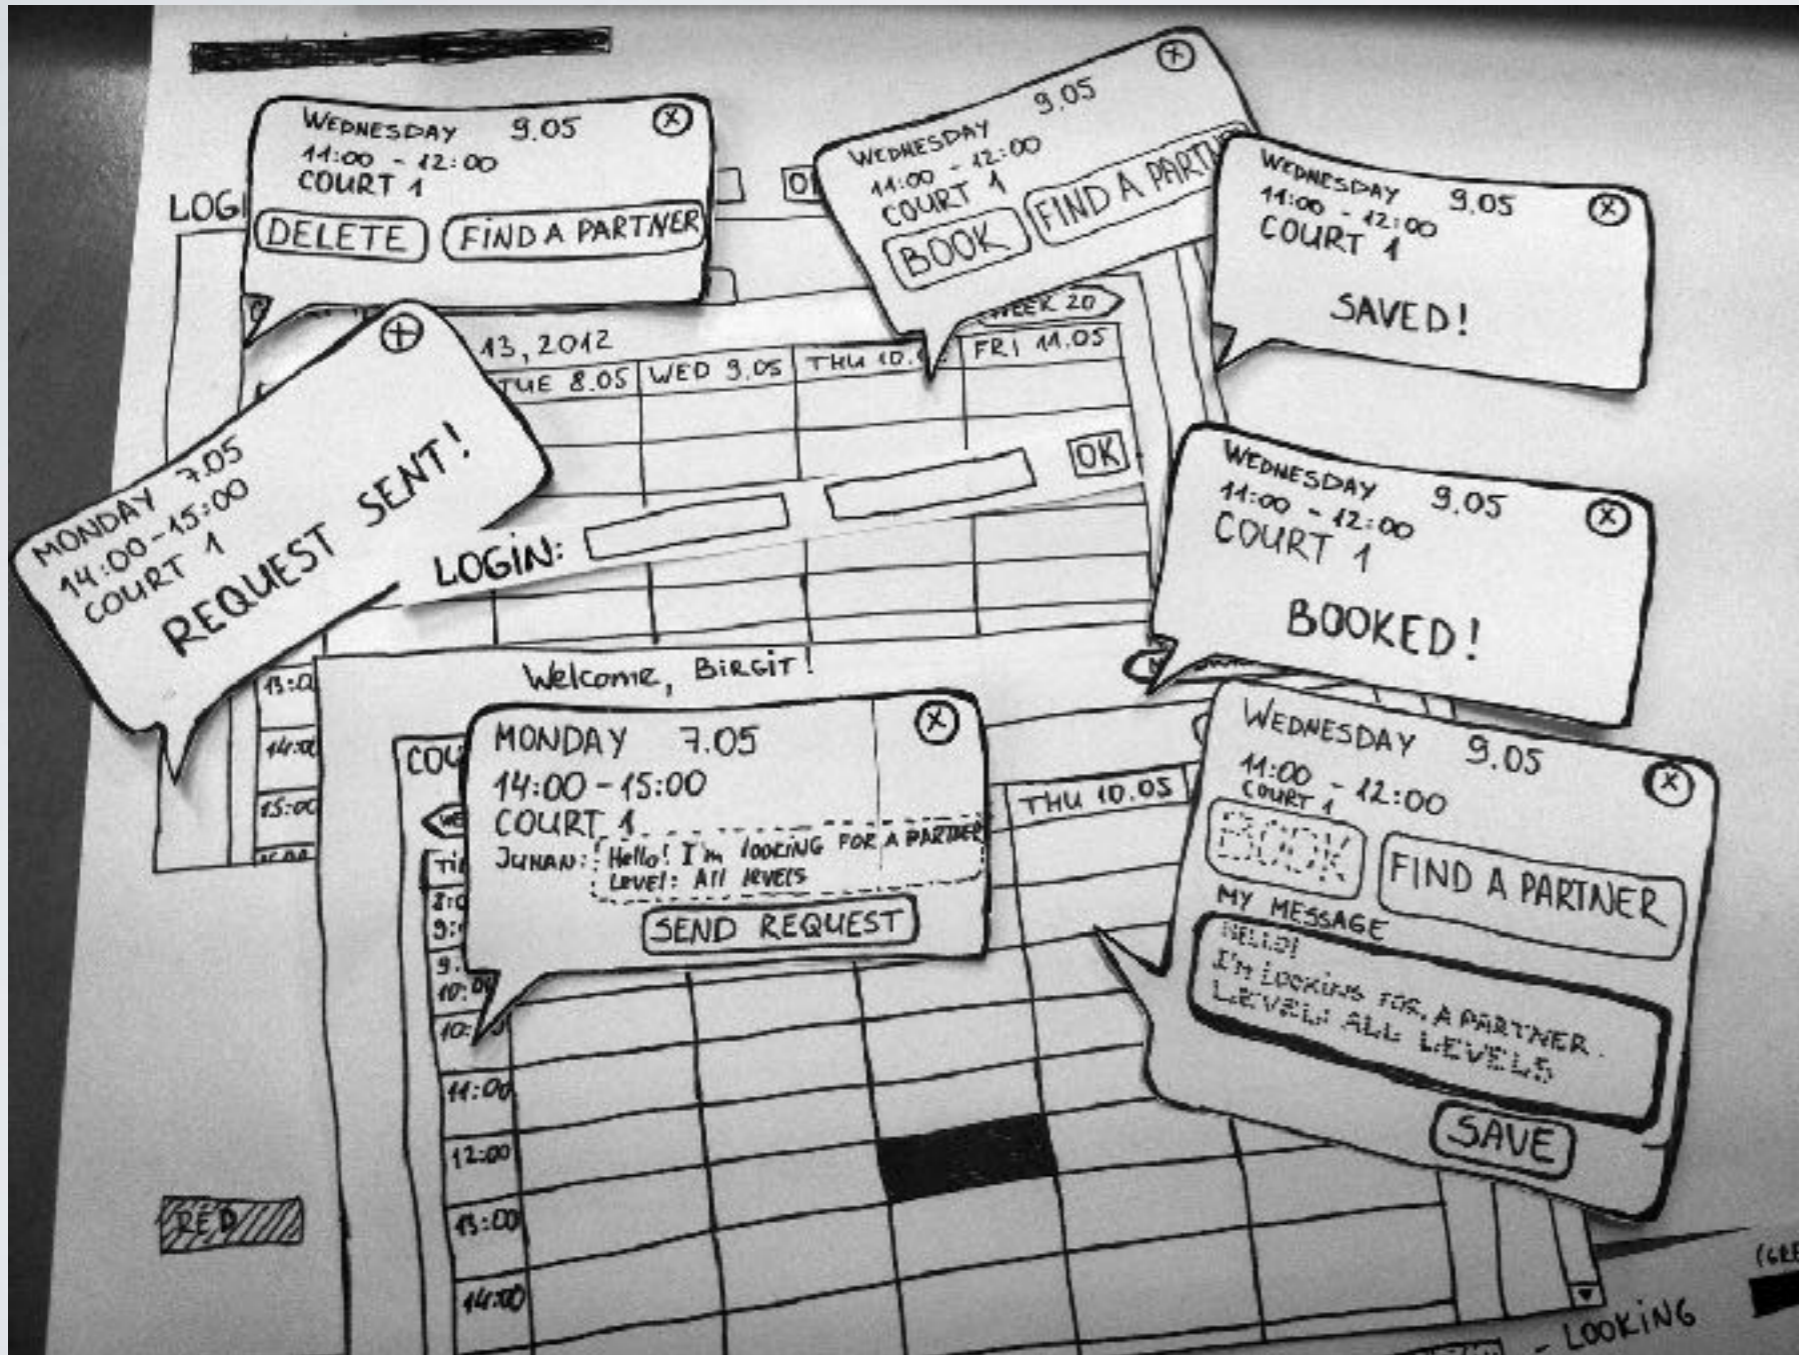 WEDNESDAY 9.05
11:00 - 12:00
COURT 1
DELETE FIND A PARTNER
WEDNESDAY 9.05
11:00 - 12:00
COURT 1
BOOK FIND A PARTN
WEDNESDAY 9.05
11:00 - 12:00
COURT 1
SAVED!
LOGI
13, 2012
TUE 8.05 WED 9.05 THU 10. FRI 11.05
MONDAY 7.05
14:00-15:00
COURT 1
REQUEST SENT!
LOGIN: OK
WEDNESDAY 9.05
11:00 - 12:00
COURT 1
BOOKED!
14:00
15:00
Welcome, BIRGIT!
MONDAY 7.05
14:00-15:00
COURT 1
JUHAN: Hello! I'm looking FOR A PARTNER
LEVEL: All levels
SEND REQUEST
COU
THU 10.05
11:00
12:00
13:00
14:00
WEDNESDAY 9.05
11:00 - 12:00
COURT 1
BOOK FIND A PARTNER
MY MESSAGE
HELLO!
I'm LOOKING FOR A PARTNER.
LEVEL: ALL LEVELS
SAVE
RED
- LOOKING